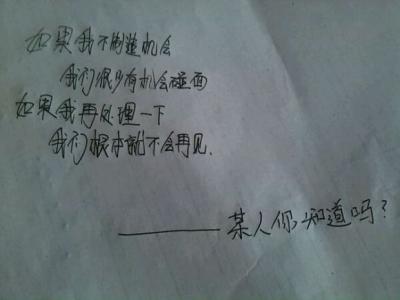 如果我不制造机会
我们很少有机会碰面
如果我再处理一下
我们根本就不会再见.
——某人你知道吗?